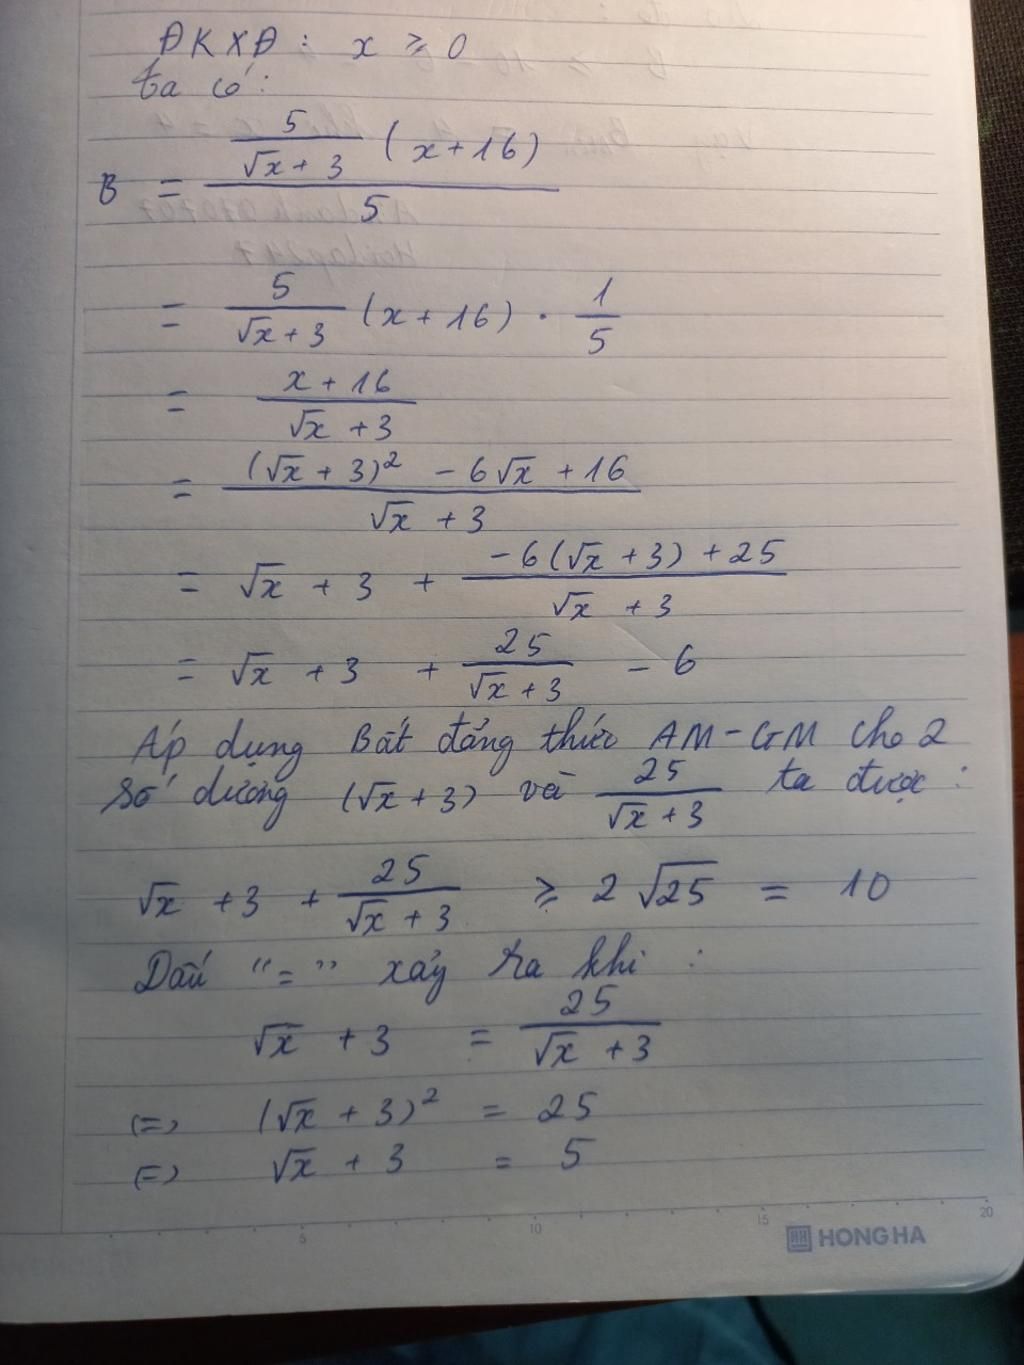 ĐKXĐ : x ≥ 0
ta có :
B = (5/(√x + 3) (x+16))/5
= 5/(√x + 3) (x + 16) · 1/5
= (x + 16)/(√x + 3)
= ((√x + 3)² - 6√x + 16)/(√x + 3)
= √x + 3 + (-6(√x + 3) + 25)/(√x + 3)
= √x + 3 + 25/(√x + 3) - 6
Áp dụng Bất đẳng thức AM-GM cho 2
số dương (√x + 3) và 25/(√x + 3) ta được :
√x + 3 + 25/(√x + 3) ≥ 2√25 = 10
Dấu "=" xảy ra khi :
√x + 3 = 25/(√x + 3)
(=) (√x + 3)² = 25
(=) √x + 3 = 5
5 10 15 20
HONG HA